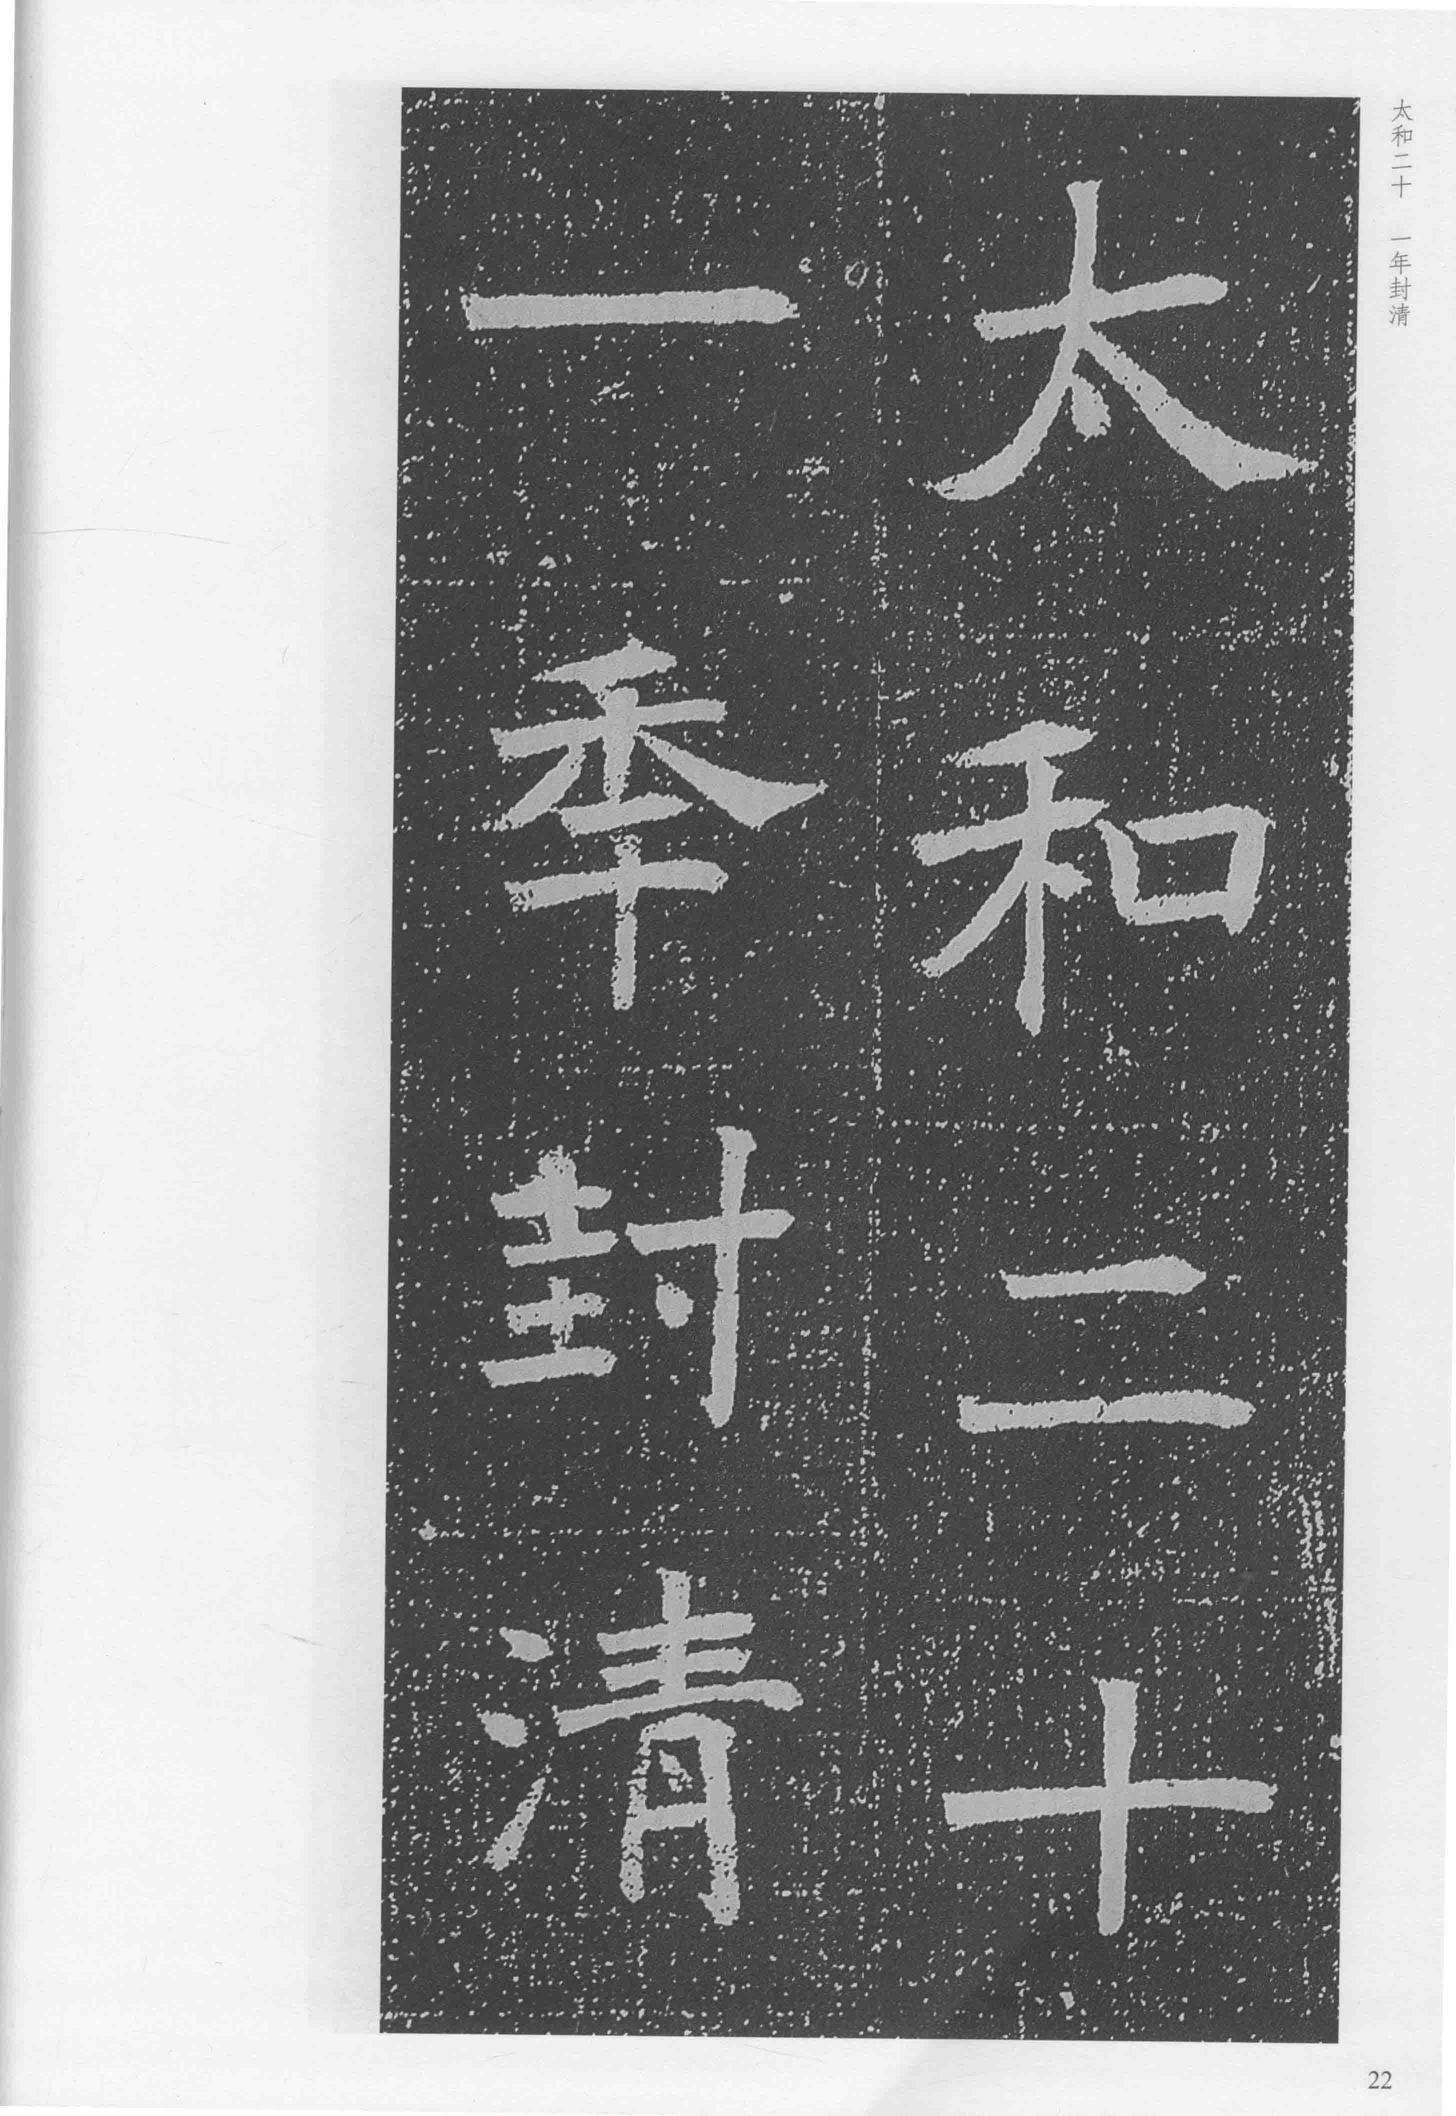 太和二十
一秊封清
太和二十　一年封清
22